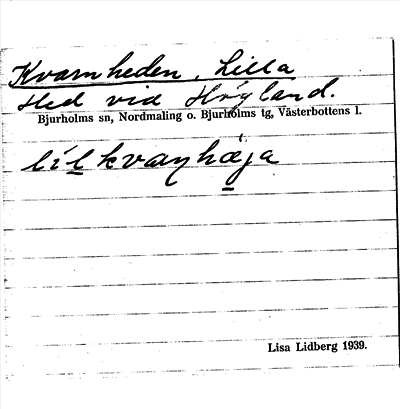 Kvarnheden, Lilla
Hed vid Högland.
Bjurholms sn, Nordmaling o. Bjurholms tg, Västerbottens l.
lílkvaŋhæja
Lisa Lidberg 1939.